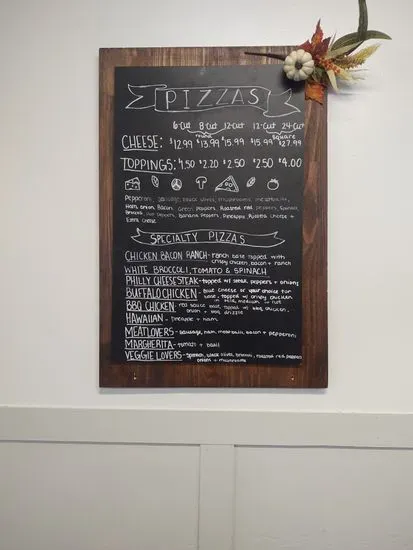 PIZZAS
6-Cut 8-Cut 12-Cut 12-Cut 24-Cut
round square
CHEESE: $12.99 $13.99 $15.99 $15.99 $27.99
TOPPINGS: $1.50 $2.20 $2.50 $2.50 $4.00
Pepperoni, Sausage, black olives, mushrooms, meatballs,
Ham, onion, Bacon, Green Peppers, Roasted red peppers, Spinach,
Broccoli, Hot Peppers, Banana Peppers, Pineapple, Ricotta Cheese +
Extra Cheese
SPECIALTY PIZZAS
CHICKEN BACON RANCH- ranch base topped with
crispy chicken, bacon + ranch
WHITE BROCCOLI, TOMATO & SPINACH
PHILLY CHEESESTEAK- topped w/ steak, peppers + onions
BUFFALO CHICKEN- blue cheese or your choice for
base, topped w/ crispy chicken
in mild, medium or hot
BBQ CHICKEN- red sauce base, topped w/ BBQ chicken,
onion + BBQ drizzle
HAWAIIAN- Pineapple + ham
MEATLOVERS- sausage, ham, meatballs, bacon + pepperoni
MARGHERITA- tomato + basil
VEGGIE LOVERS- spinach, black olives, broccoli, roasted red pepper
onion + mushrooms